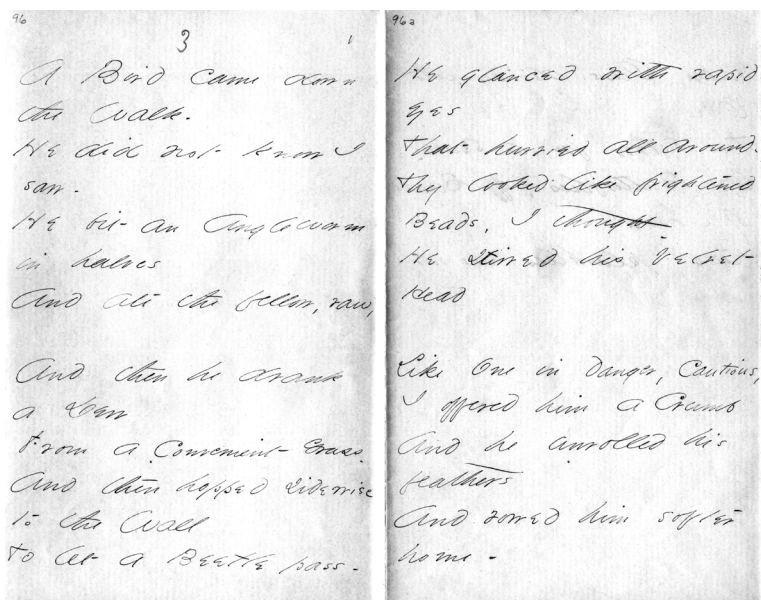 96
3
1
A Bird came down
the Walk -
He did not know I
saw -
He bit an Angleworm
in halves
And ate the fellow, raw,
And then he drank
a Dew
From a Convenient Grass -
And then hopped sidewise
to the Wall
To let a Beetle pass -
96a
He glanced with rapid
eyes
That hurried all around -
They looked like frightened
Beads, I thought -
He stirred his Velvet
Head
Like One in danger, Cautious,
I offered him a Crumb
And he unrolled his
feathers
And rowed him softer
home -